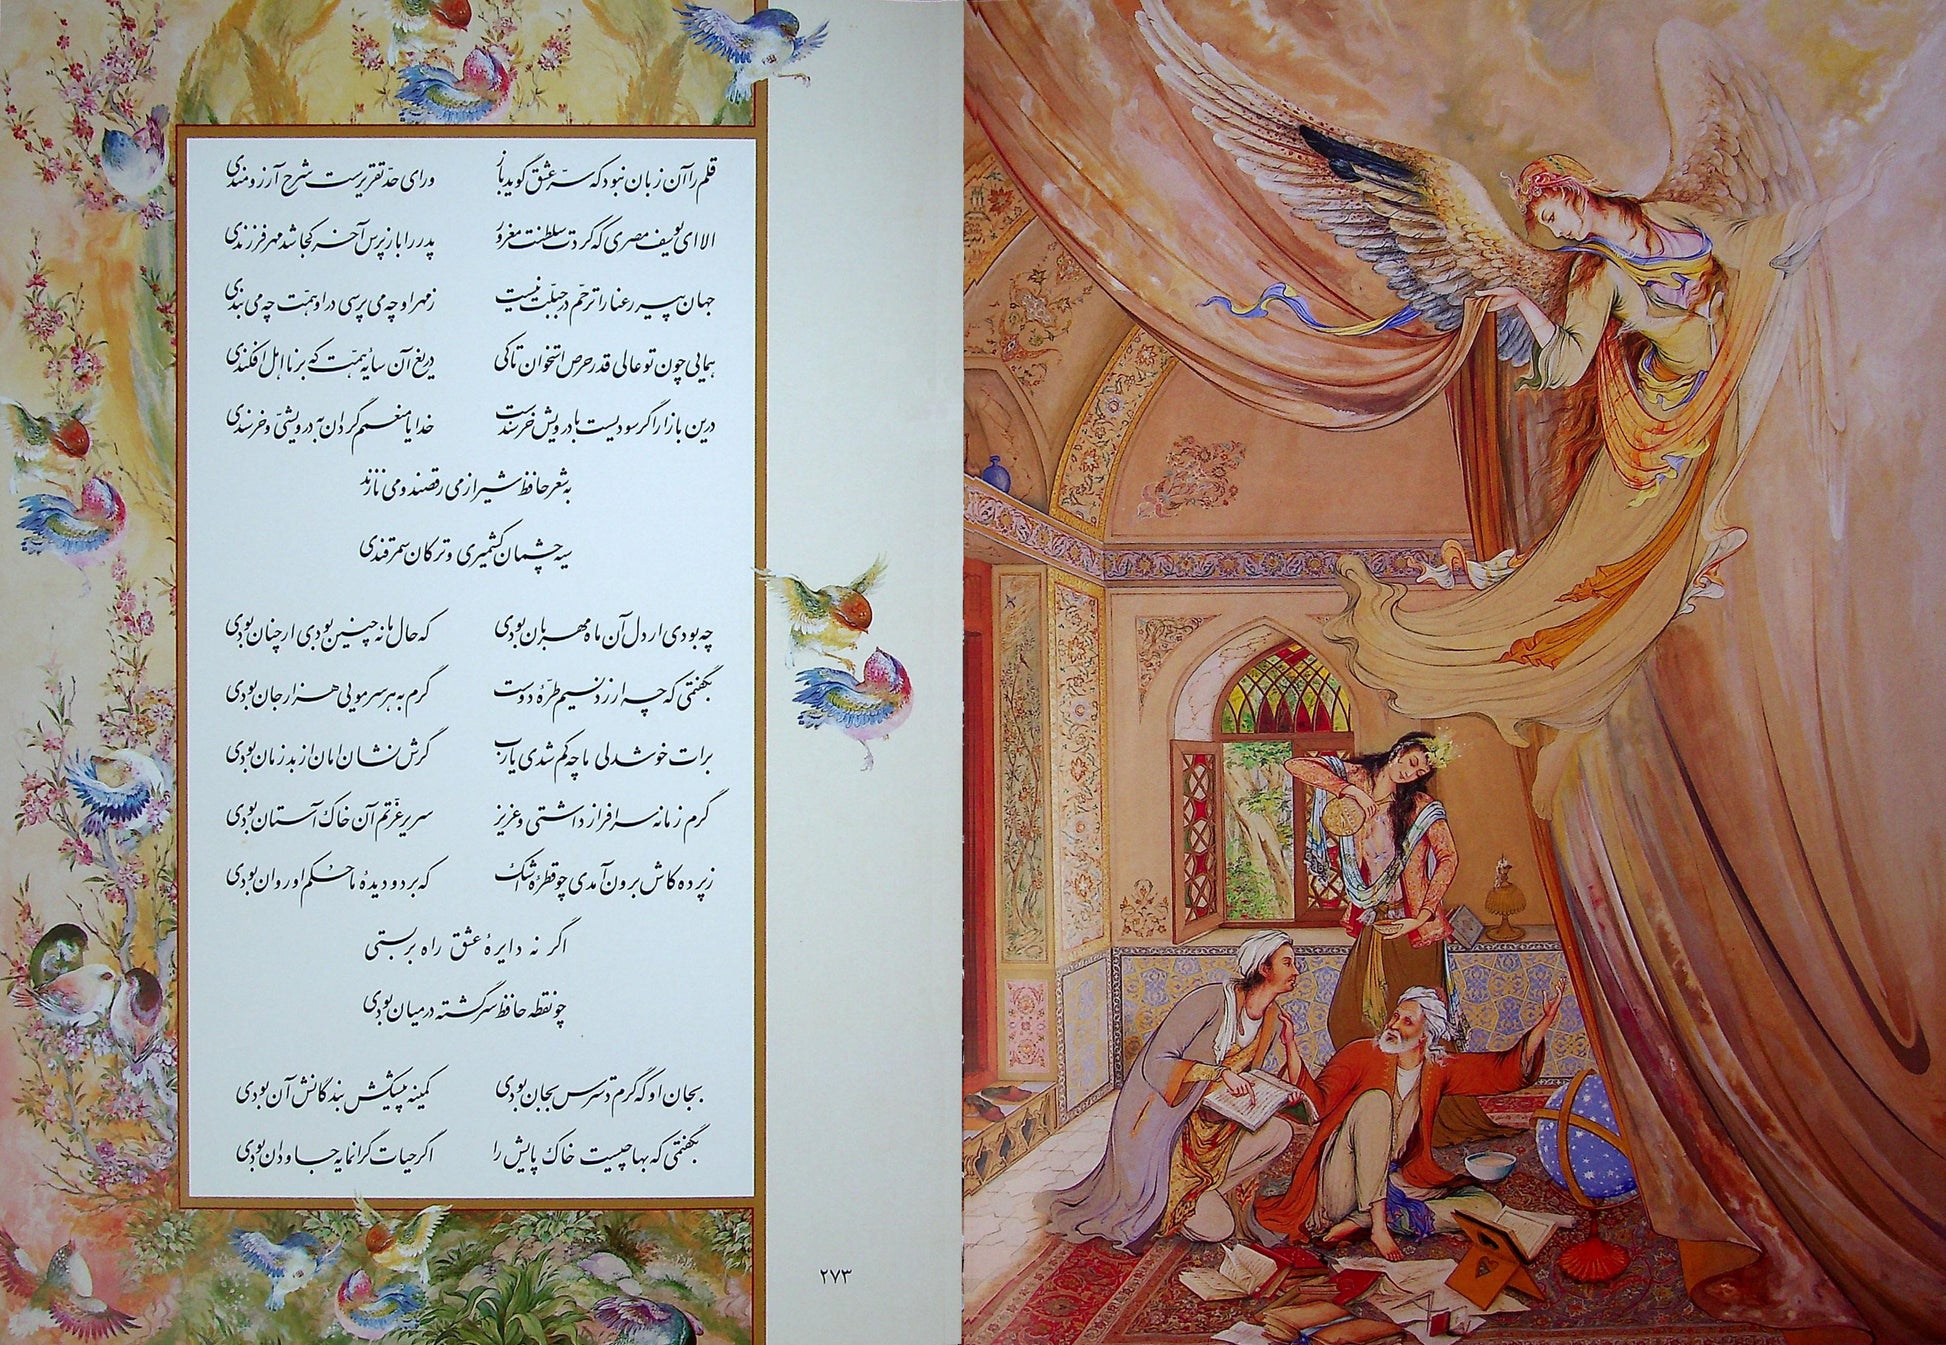 قلم را آن زبان نبود که سرّ عشق گوید باز ورای حدّ تقریرست شرح آرزومندی
الا ای یوسف مصری که کردت سلطنت مغرور پدر را باز پرس آخر کجا شد مهر فرزندی
جهان پیر رعنا را ترحّم در جبلّت نیست ز مهر او چه می پرسی در او همّت چه می بندی
همایی چون تو عالی قدر حرص استخوان تا کی دریغ آن سایهٔ همّت که بر نااهل افکندی
درین بازار اگر سودیست با درویش خرسندست خدایا منعمم گردان به درویشیّ و خرسندی
به شعر حافظ شیراز می رقصند و می نازند
سیه چشمان کشمیری و ترکان سمرقندی
چه بودی ار دل آن ماه مهربان بودی که حال ما نه چنین بودی ار چنان بودی
بگفتمی که چه ارزد نسیم طرّهٔ دوست گرم به هر سر مویی هزار جان بودی
برات خوشدلی ما چه کم شدی یارب گرش نشان امان از بد زمان بودی
گرم زمانه سرافراز داشتی و عزیز سریر عزّتم آن خاک آستان بودی
ز پرده کاش برون آمدی چو قطرهٔ اشک که بر دو دیدهٔ ما حکم او روان بودی
اگر نه دایرهٔ عشق راه بربستی
چو نقطه حافظ سرگشته در میان بودی
بجان او که گرم دسترس بجان بودی کمینه پیشکش بندگانش آن بودی
بگفتمی که بها چیست خاک پایش را اگر حیات گرانمایه جاودان بودی
۲۷۳